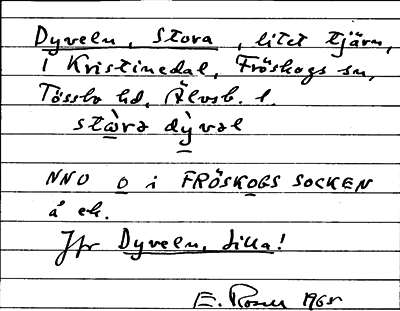 Dyveln, Stora, litet tjärn,
i Kristinedal, Fröskogs sn,
Tössbo hd, Älvsb. l.
stɑ̀ra dỳvəl
NNO o i FRÖSKOGS SOCKEN
å ek.
Jfr Dyveln, Lilla!
E. Rosell 1965